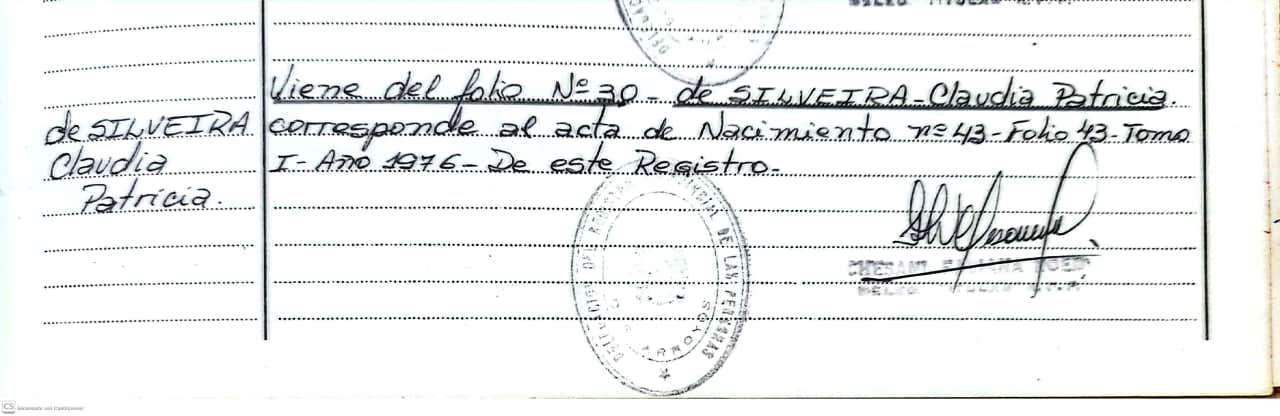 Viene del folio Nº 30 - de SILVEIRA - Claudia Patricia.
de SILVEIRA
Claudia
Patricia.
corresponde al acta de Nacimiento nº 43 - Folio 43 - Tomo
I - Año 1976 - De este Registro.
DE LAS PERSONAS
ARROYOS
CS